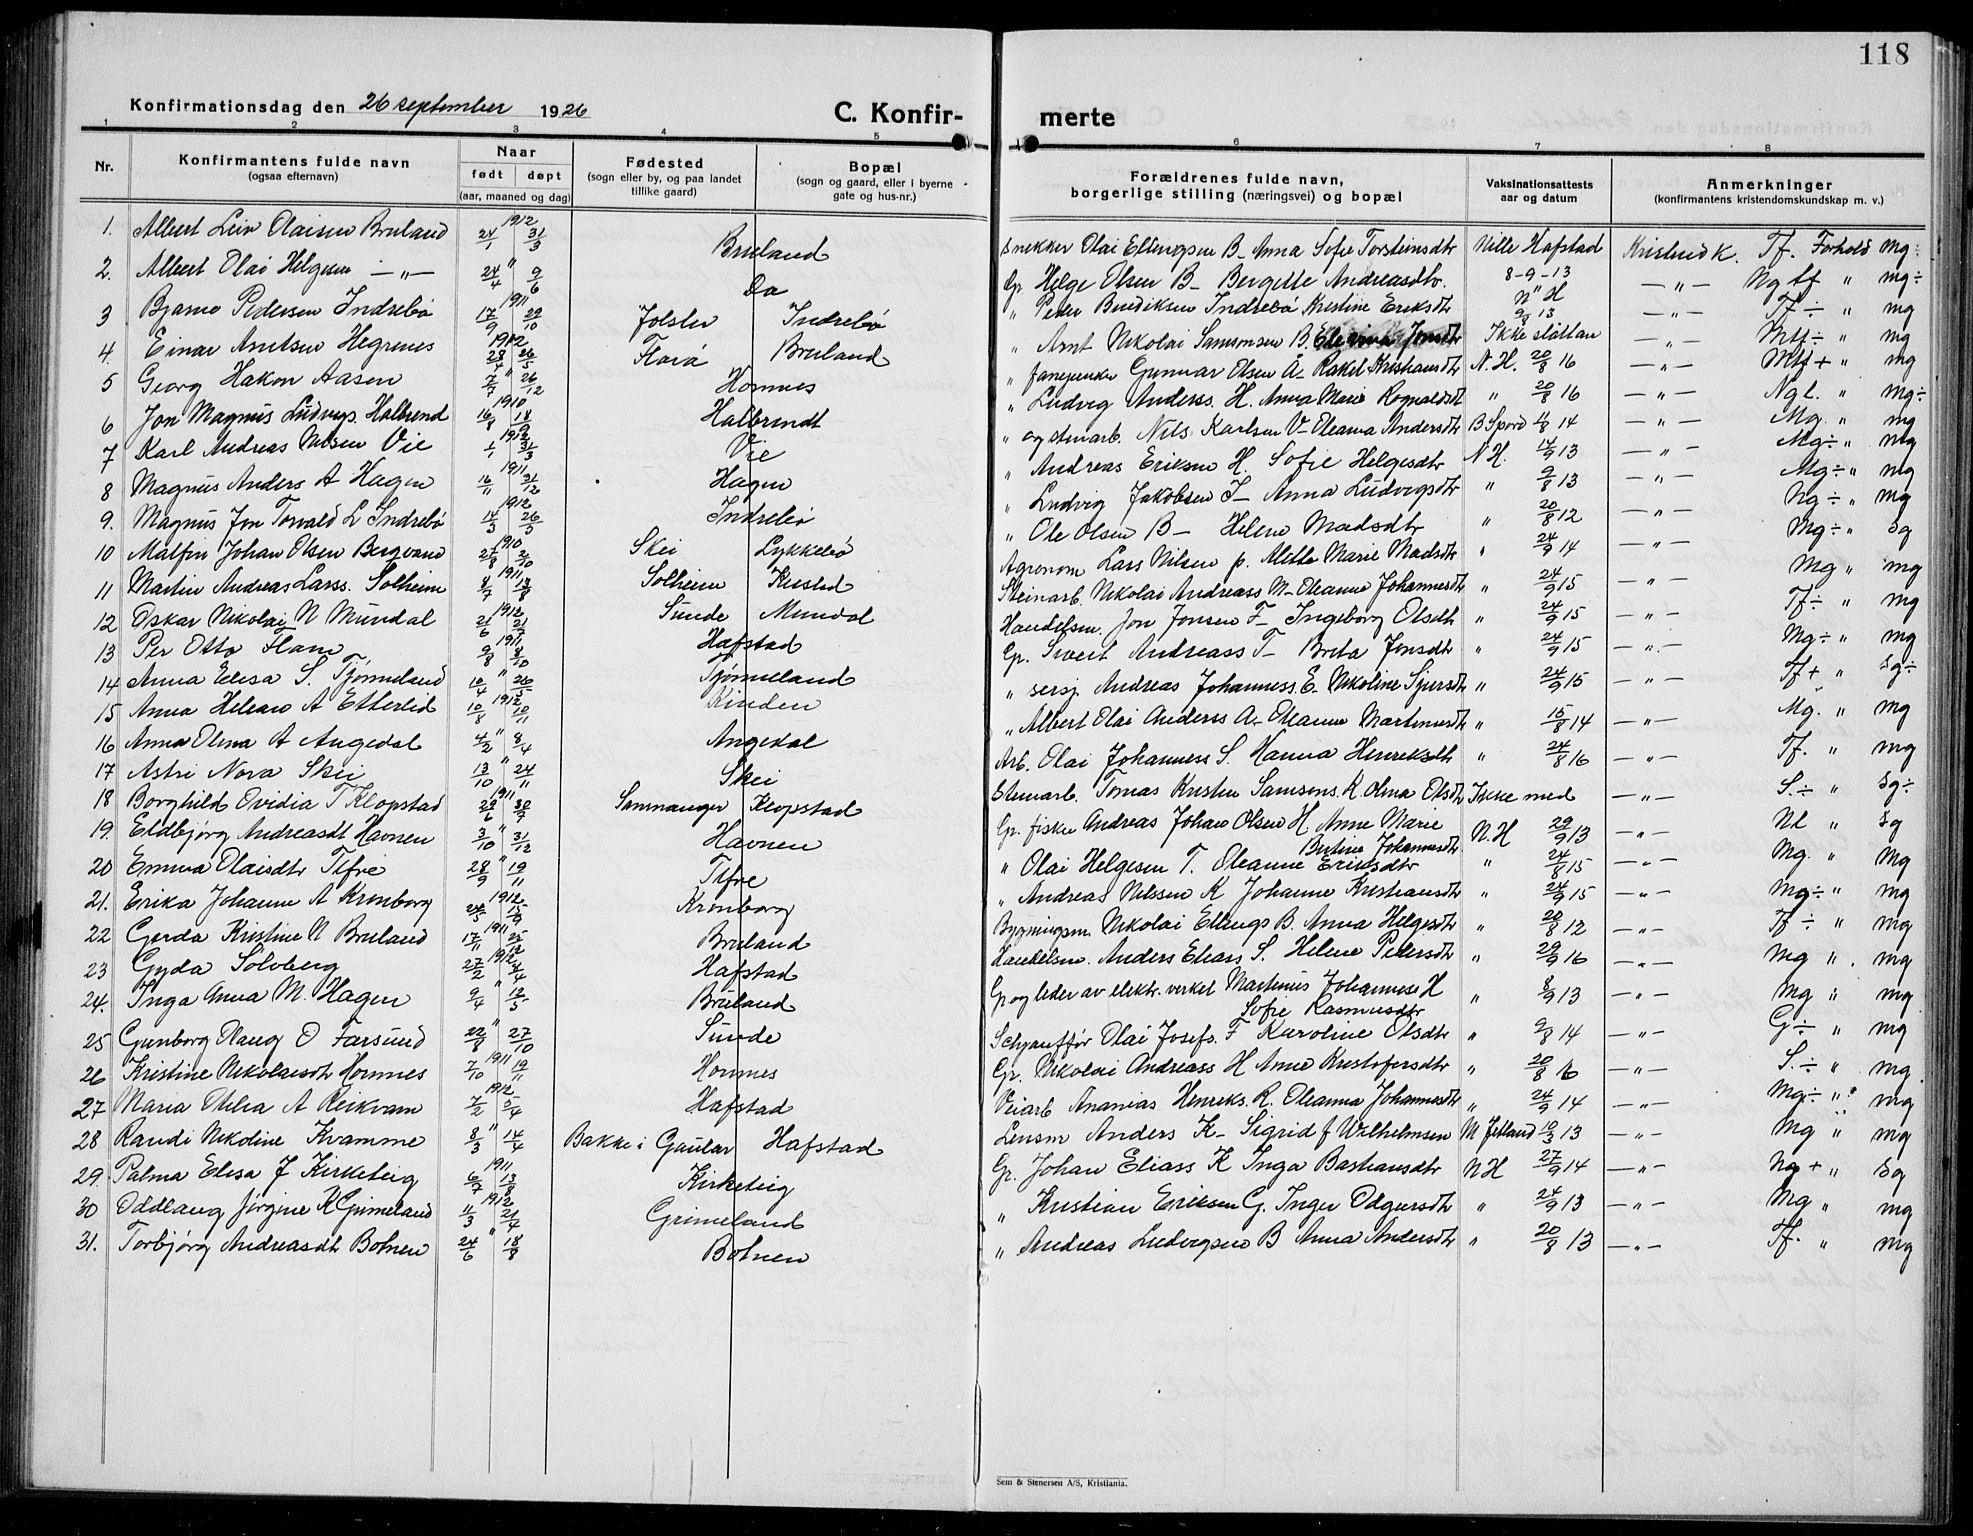 118
Konfirmationsdag den 26 september 1926
C. Konfir-
merte
1 2 3 4 5 6 7 8
Nr.
Konfirmantens fulde navn
(ogsaa efternavn)
Naar
født døpt
(aar, maaned og dag)
Fødested
(sogn eller by, og paa landet
tillike gaard)
Bopæl
(sogn og gaard, eller i byerne
gate og hus-nr.)
Forældrenes fulde navn,
borgerlige stilling (næringsvei) og bopæl
Vaksinationsattests
aar og datum
Anmerkninger
(konfirmantens kristendomskundskap m. v.)
1. Albert Leiv Olaisen Bruland 1912 24/1 31/3 Bruland Snekker Olai Ellingsen B- Anna Sofie Torsteinsdtr Nille Hafstad 8-9-13 Kristendk. Tf. Forhold Mg÷
2. Albert Olai Helgesen -"- " 24/4 9/6 Do Gp. Helge Olsen B- Bergitte Andreasdtr. N" H 9/8 13 -"- Ng tf " mg÷
3 Bjarne Pedersen Indrebø 1911 17/9 29/10 Jølster Indrebø " Peder Bendiksen Indrebø Kristine Eriksdtr -"- Tf÷ " mg
4. Einar Arntsen Hegrenes 1912 28/4 26/5 Florø Bruland " Arnt Nikolai Samsonsen B. Jonsdtr Ikke slåttan -"- Mtf÷ " mg
5 Georg Hakon Aasen 7/7 26/12 Hornnes " fanejunker Gunnar Olsen Å- Rakel Kristiansdtr N. H. 20/8 16 -"- Mtf+ " mg
6 Jon Magnus Ludvigs. Halbrend 1910 16/8 18/9 Halbrendt " Ludvig Anderss. H. Anna Marie Romaldsdt " 20/8 16 -"- Ngl. " mg÷
7 Karl Andreas Nilsen Vie 1912 1/1 31/3 Vie " og stenarb. Nils Karlsen V- Oleana Andersdtr B Spord 11/8 14 -"- Mg. " mg
8 Magnus Anders A Hagen 1911 16/11 31/12 Hagen " Andreas Eriksen H. Sofie Helgesdtr N H. 14/9 13 -"- Mg÷ " mg
9. Magnus Jon Torvald L Indrebø 1912 14/3 26/5 Indrebø " Ludvig Jakobsen I- Anna Ludvigsdtr " 9/8 13 -"- Mg÷ " mg
10 Malfin Johan Olsen Bergvand 1910 27/8 2/10 Skei Lykkebø " Ole Olsen B- Helene Madsdtr " 20/8 12 -"- Ng÷ " Mg
11 Martin Andreas Larss. Solheim 1911 8/7 13/8 Solheim Kusted Agronom Lars Nilsen p. Alette Marie Madsdtr " 24/9 14 -"- Mg÷ " Sg
12 Oskar Nikolai N Mundal 1912 21/6 21/7 Sunde Mundal Steinarb. Nikolai Andreass M- Oleanne Johannesdtr " 24/9 15 -"- Mg " mg
13 Per Otto Flam 1911 9/8 8/10 Hafstad Handelsm. Jon Jonsen F- Ingeborg Olsdtr " 24/9 15 -"- Tf÷ " mg
14 Anna Elisa S. Tjønneland " 10/4 26/5 Tjønneland Gp. Sivert Andreass T- Brita Jonsdtr " 24/9 15 -"- Mg÷ " mg
15 Anna Helene A Etterlid 1912 10/8 10/11 Kinden " sersj. Andreas Johanness. E- Nikoline Sjursdtr " 24/9 15 -"- Tf+ " Sg÷
16 Anna Olena A Angedal " 4/2 8/4 Angedal " Albert Olai Anderss A- Oleanne Martinusdtr " 15/8 14 -"- Mg. " mg
17 Astri Nora Skei " 13/10 24/11 Skei Arb. Olai Johanness S. Hanna Henriksdtr " 24/8 16 -"- Tf. " mg
18 Borghild Ovidia T Klopstad 1911 29/6 30/7 Sammanger Klopstad Stenarb. Tomas Kristen Samsons. K Olina Olsdtr Ikke med -"- S.÷ " Sg÷
19. Eldbjørg Andreasdt Havnen " 3/10 31/12 Havnen Gp. fisker Andreas Johan Olsen H Anne Marie Bertine Johannesdtr N. H 29/9 13 -"- Nl " Sg
20 Emma Olaisdtr Tefre " 28/9 19/11 Tefre " Olai Helgesen T. Oleanne Eriksdtr " 24/8 15 -"- Mg. " Mg
21. Erika Johanne A Kronborg 1912 24/5 15/9 Kronborg " Andreas Nilssen K Johanne Kristiansdtr " 24/9 15 -"- Mg÷ " mg
22 Gerda Kristine N Bruland 1911 17/11 25/12 Bruland Bygningsm. Nikolai Ellings B. Anna Helgesdtr " 20/8 12 -"- Tf÷ " mg
23 Gyda Solvberg 1912 27/2 8/4 Hafstad Handelsm. Anders Eliass S. Helene Pedersdtr " 29/9 16 -"- Mg " mg
24. Inga Anna M. Hagen " 9/4 12/5 Bruland Gp og leder av elektr. verket Martinus Johanness H Sofie Rasmusdtr " 8/9 13 -"- Mg " mg
25 Gunborg Olaug O Farsund " 22/8 27/10 Sunde Schjauffør Olai Josefs. F Karoline Olsdtr " 9/8 14 -"- G÷ " mg
26 Kristine Nikolaisdtr Hornnes 1911 7/10 19/11 Hornnes Gp. Nikolai Andreass H Anne Kristofersdtr " 20/8 16 -"- S.÷ " mg.
27 Maria Otelia A Reikvam 1912 7/2 5/4 Hafstad Veiarb Ananias Henriks. R. Oleanna Johannesdtr " 24/9 14 -"- Mg÷ " mg
28 Randi Nikoline Kvamme " 8/3 14/4 Bakke i Gaular Hafstad Lensm Anders K- Sigrid f Wilhelmsen M Jetland 10/3 13 -"- Mg " mg
29. Palma Elisa J Kirketeig 1911 6/7 13/8 Kirketeig Gp. Johan Eliass K Inga Bastiansdtr N H 27/9 14 -"- Ng+ " Sg
30 Oddlaug Jørgine K Grimeland 1912 11/3 21/4 Grimeland " Kristian Eriksen G. Inger Odgersdtr " 24/9 13 -"- Mg " mg
31. Torbjørg Andreasdt Botnen " 24/6 18/8 Botnen " Andreas Ludvigsen B Anna Andersdtr " 20/8 13 -"- Tf. " mg
Sem & Stenersen A/S, Kristiania.